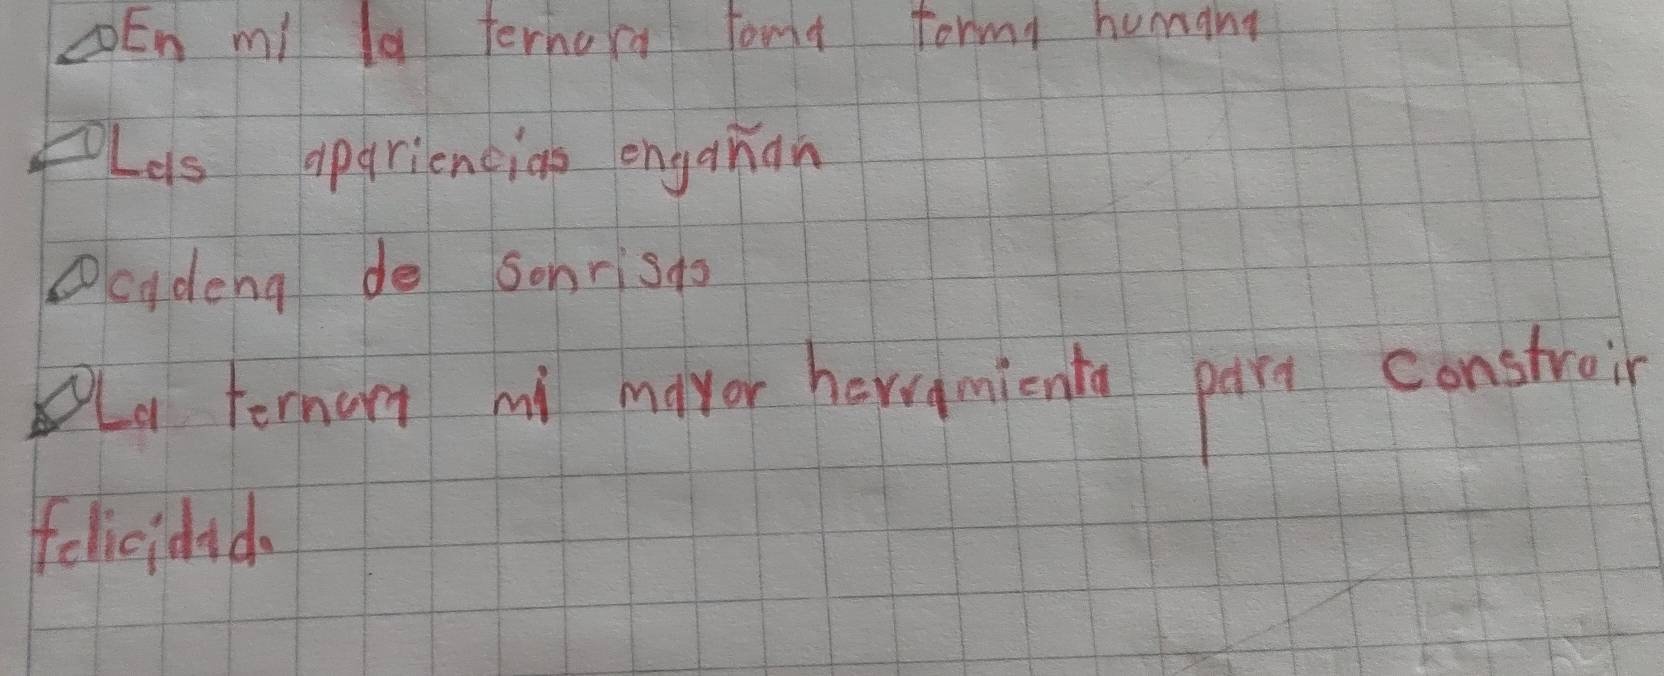 En mi la ternura toma forma humana
Las apariencias engañan
cadena de sonrisas
La ternura mi mayor herramienta para construir
felicidad.